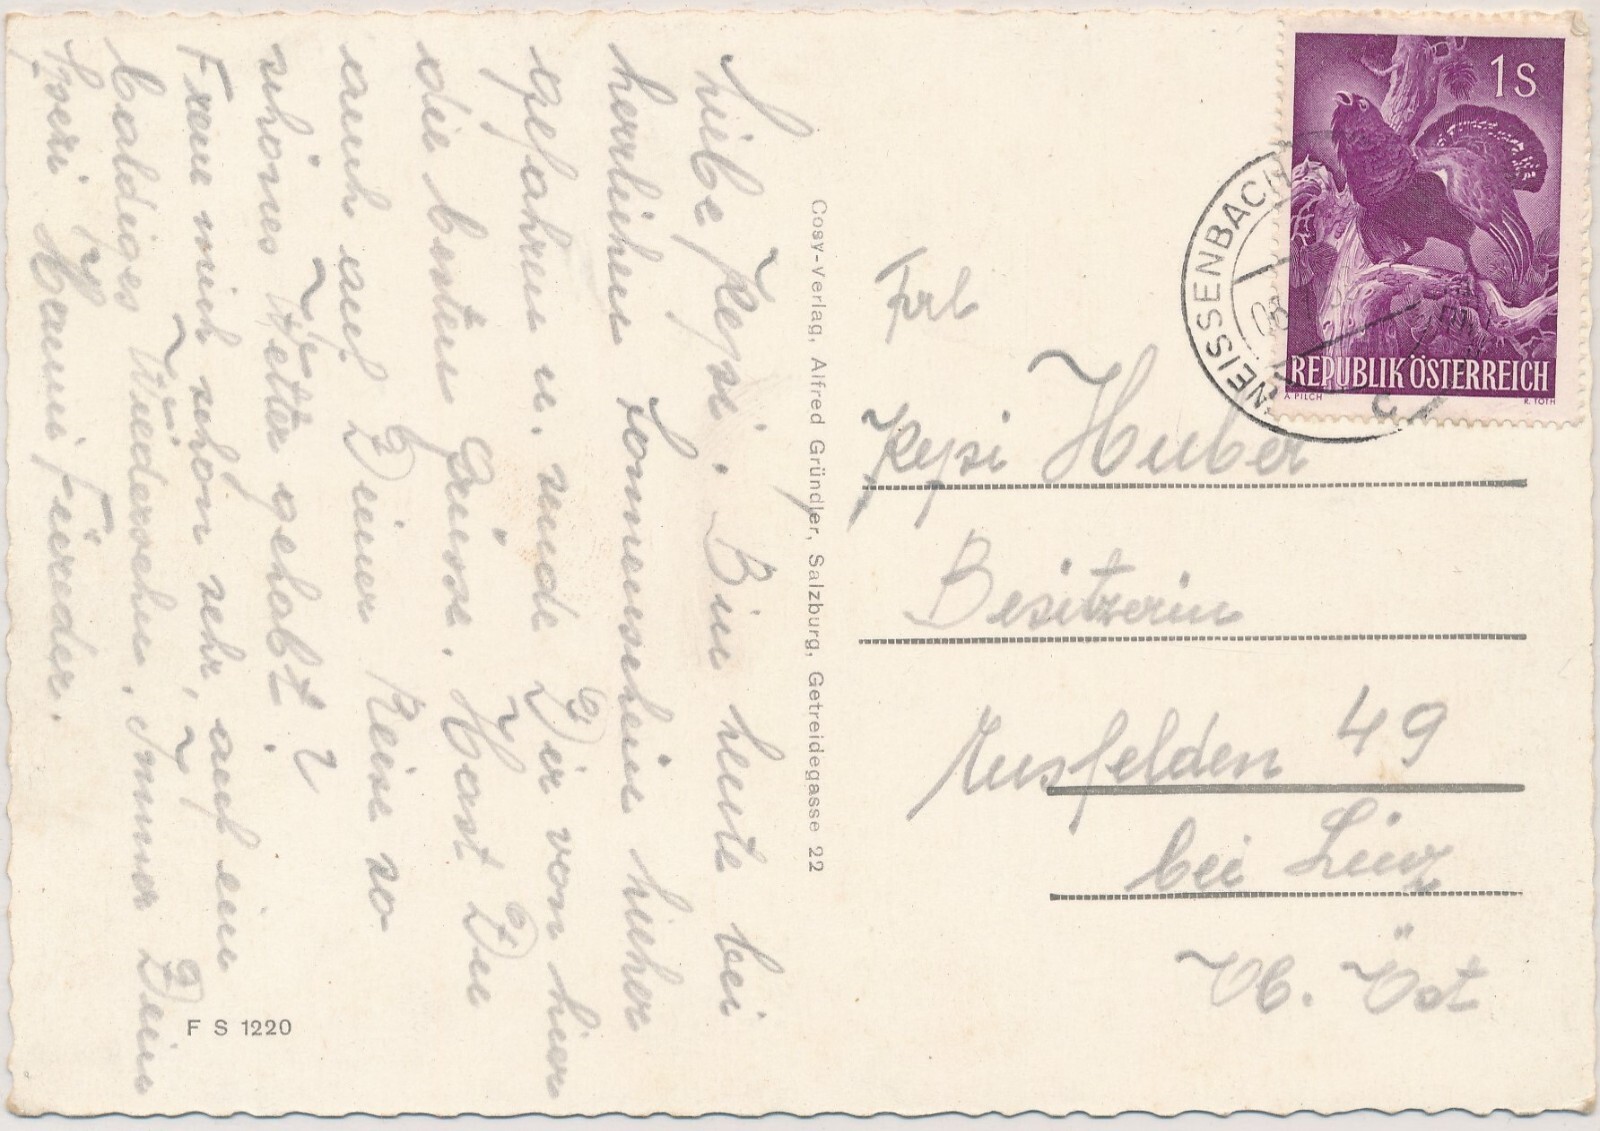 Liebe Pepi. Bin heute bei
herrlichen Sonnenschein hieher
gefahren u. sende Dir von hier
die besten Grüsse. Hast Du
auch auf Deiner Reise so
schönes Wetter gehabt?
Freue mich schon sehr, auf ein
baldiges Wiedersehn. Immer Dein
Hanni Füreder.
F S 1220
Cosy-Verlag, Alfred Gründler, Salzburg, Getreidegasse 22
1 S
REPUBLIK ÖSTERREICH
A. PILCH
R. TOTH
WEISSENBACH
C
Frl
Pepi Huber
Besitzerin
Ansfelden 49
bei Linz
Ob. Öst